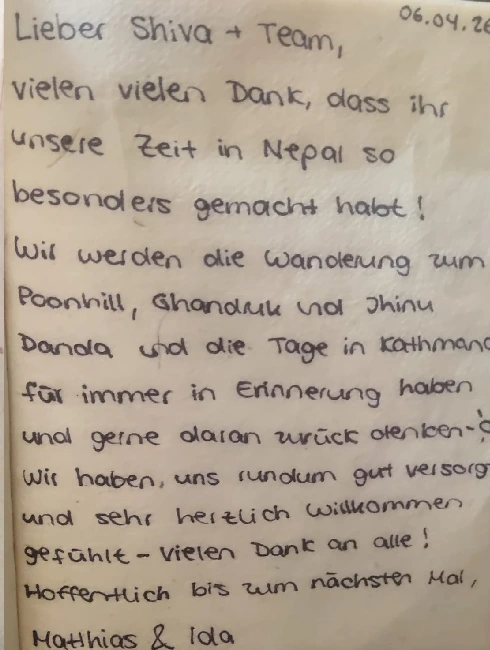 06.04.26
Lieber Shiva + Team,
vielen vielen Dank, dass ihr
unsere Zeit in Nepal so
besonders gemacht habt!
Wir werden die Wanderung zum
Poonhill, Ghandruk und Jhinu
Danda und die Tage in Kathmand
für immer in Erinnerung haben
und gerne daran zurück denken-
Wir haben, uns rundum gut versorg
und sehr herzlich willkommen
gefühlt - Vielen Dank an alle!
Hoffentlich bis zum nächsten Mal,
Matthias & Ida